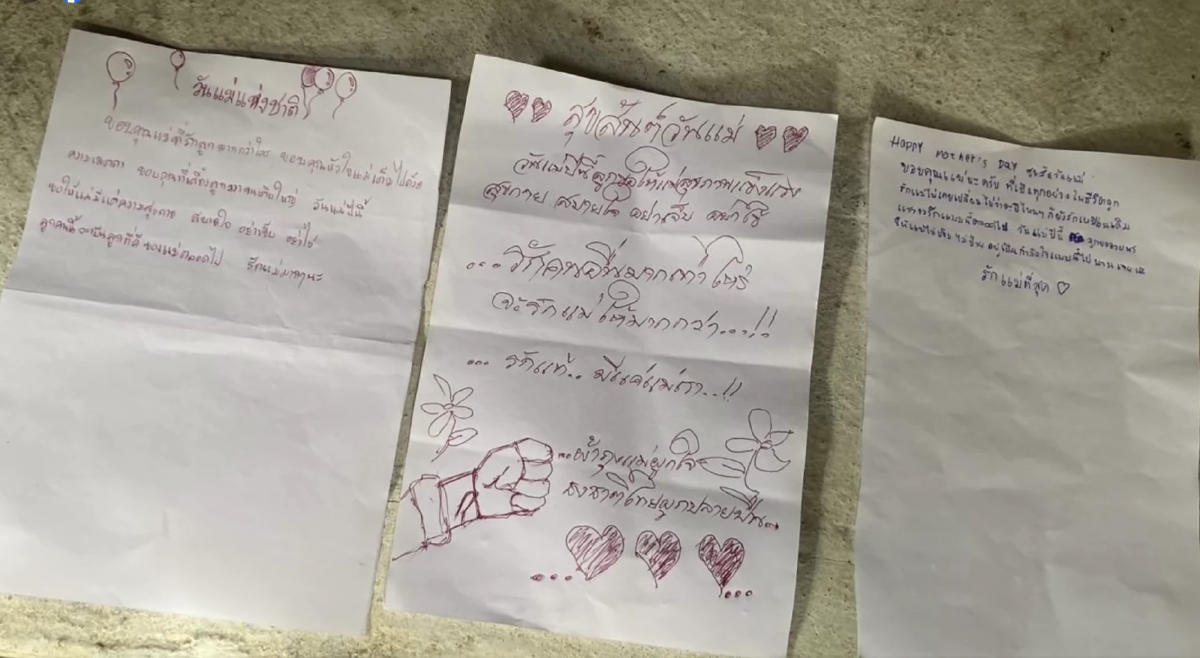 วันแม่แห่งชาติ
ขอบคุณแม่ที่รักลูกมากกว่าใคร ขอบคุณหัวใจแม่เต็มไปด้วย
ความเมตตา ขอบคุณที่เลี้ยงลูกมาจนเติบใหญ่ วันแม่ปีนี้
ขอให้แม่มีแต่ความสุขกาย สบายใจ อย่าเจ็บ อย่าไข้
ลูกคนนี้จะเป็นลูกที่ดีของแม่ตลอดไป รักแม่มากนะ
สุขสันต์วันแม่
วันแม่ปีนี้ลูกขอให้แม่สุขภาพแข็งแรง
สุขกาย สบายใจ อย่าเจ็บ อย่าไข้
...รักคนอื่นมากเท่าไหร่
จะรักแม่ให้มากกว่า...!!
... รักแท้.. มีแค่แม่เรา..!!
...ผ้าถุงแม่ผูกใจ
ธงชาติไทยผูกปลายปืน...
...
...
HAPPY MOTHER'S DAY สุขสันต์วันแม่
ขอบคุณแม่นะครับ ที่เป็นทุกอย่างในชีวิตลูก
รักแม่ไม่เคยเปลี่ยน ไม่ว่าจะปีไหนๆ ก็ยังรักเหมือนเดิม
และจะรักแบบนี้ตลอดไป วันแม่ปีนี้
อยู่เป็นกำลังใจแบบนี้ไปนานๆ
รักแม่ที่สุด ♡